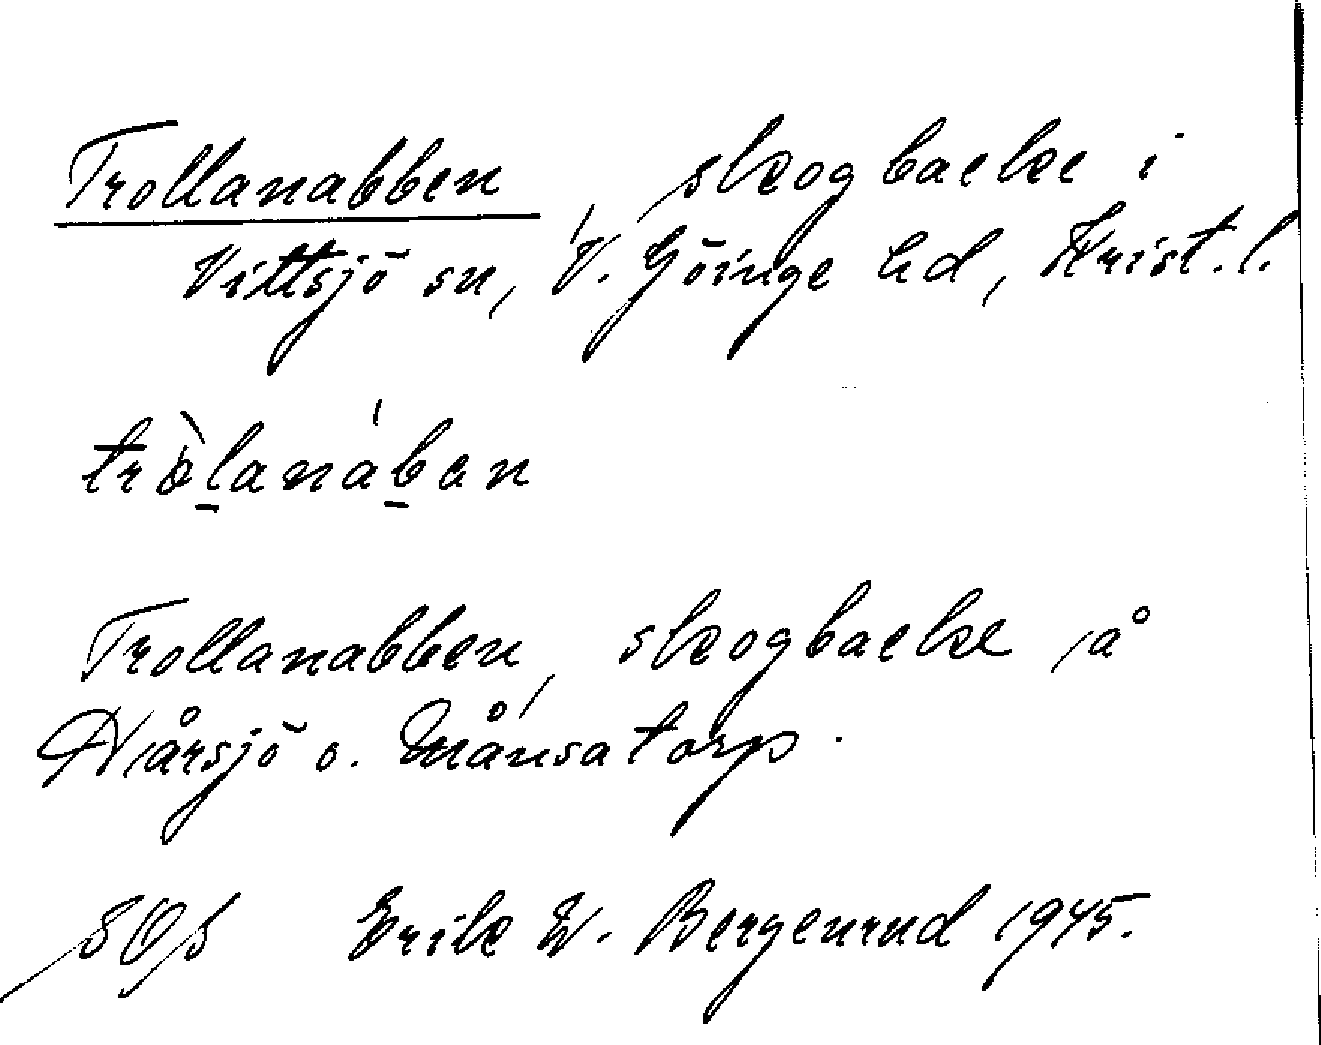 Trollanabben, skogbacke i
Vittsjö sn, V. Göinge hd, Krist. l.
tròlanában
Trollanabben, skogbacke på
Hårsjö o. Månsatorp.
Erik W. Bergenrud 1945.